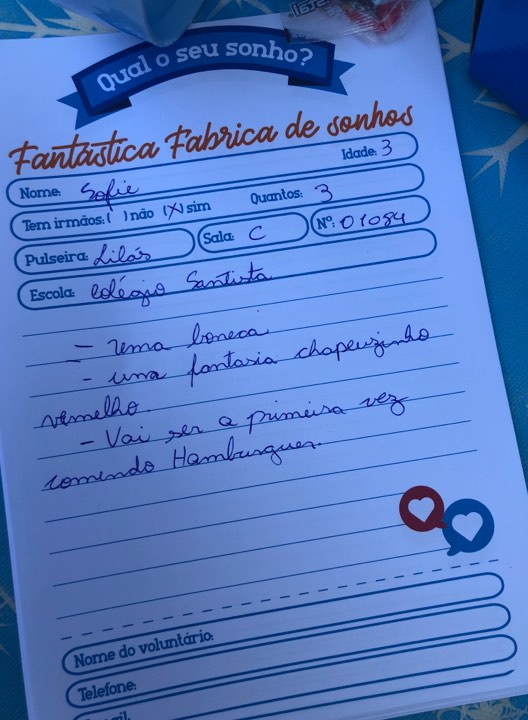 Qual o seu sonho?
Fantástica Fabrica de sonhos
Nome: Sofie Idade: 3
Tem irmãos: ( ) não (X) sim Quantos: 3
Pulseira: Lilás Sala: C Nº: 01084
Escola: Colégio Santista
- uma boneca
- uma fantasia chapeuzinho
vermelho.
- Vai ser a primeira vez
comendo Hamburguer.
Nome do voluntário:
Telefone: